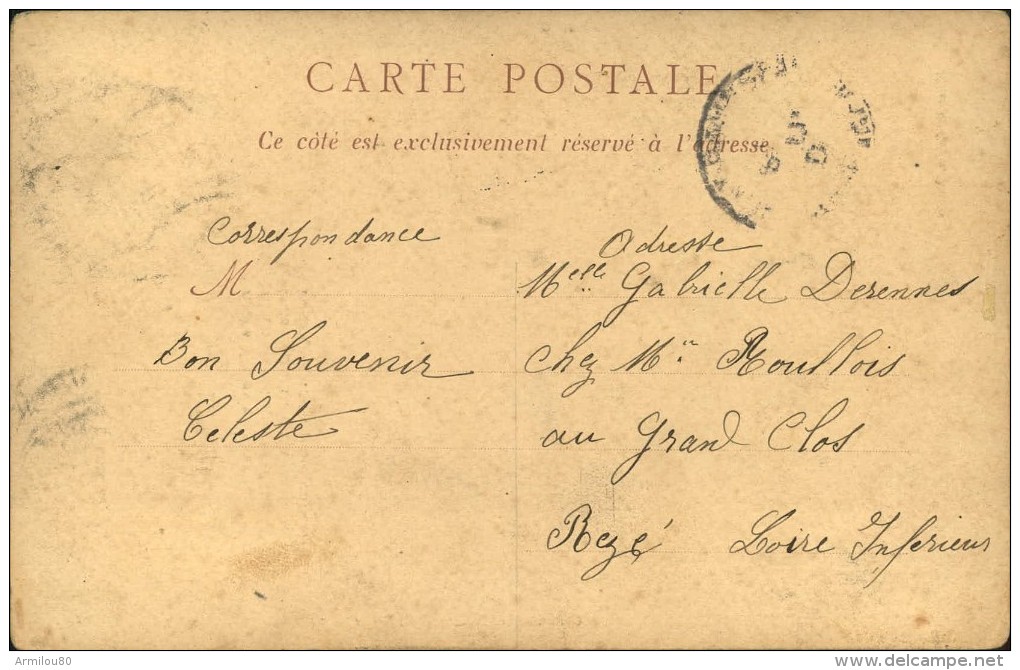 CARTE POSTALE
Ce côté est exclusivement réservé à l'adresse
Correspondance
M
Bon Souvenir
Celeste
Adresse
Melle Gabrielle Derennes
chez Mr Roullois
au Grand Clos
Rezé Loire Inferieur
Armilou80
delcampe.net